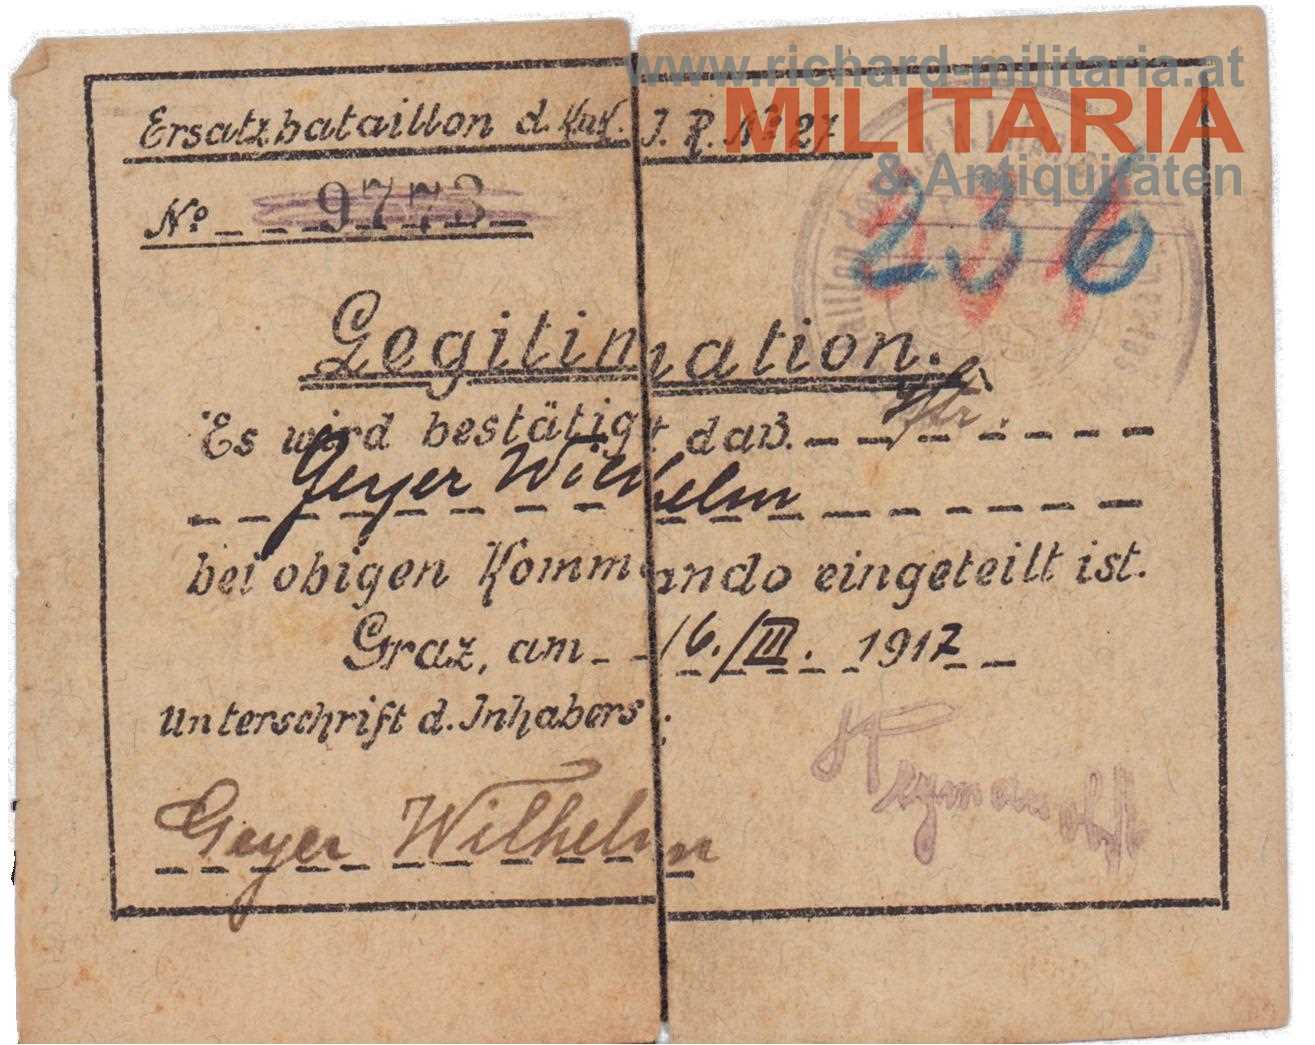 www.richard-militaria.at
MILITARIA
& Antiquitäten
Ersatzbataillon d. KuK. I. R. No 27
No. 9773
236
Legitimation.
Es wird bestätigt daß
Geyer Wilhelm
bei obigen Kommando eingeteilt ist.
Graz, am 16./III. 1917
Unterschrift d. Inhabers:
Geyer Wilhelm